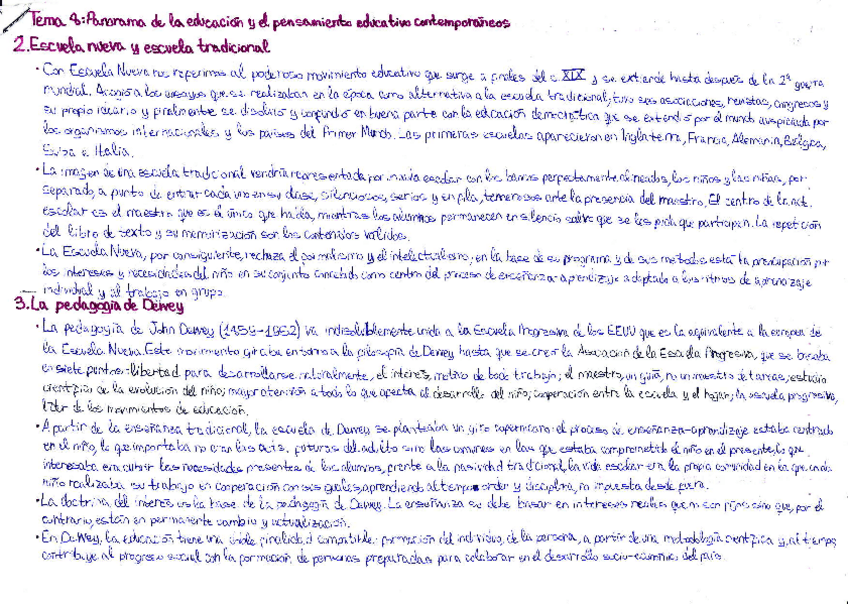 Tema 8: Panorama de la educación y el pensamiento educativo contemporáneos
2. Escuela nueva y escuela tradicional
• Con Escuela Nueva nos referimos al poderoso movimiento educativo que surge a finales del s. XIX y se extiende hasta después de la 2ª guerra
mundial. Acogió a los ensayos que se realizaban en la época como alternativa a la escuela tradicional; tuvo sus asociaciones, revistas, congresos y
su propio ideario y finalmente se disolvió y confundió en buena parte con la educación democrática que se extendió por el mundo auspiciada por
los organismos internacionales y los países del Primer Mundo. Las primeras escuelas aparecieron en Inglaterra, Francia, Alemania, Bélgica,
Suiza e Italia.
• La imagen de una escuela tradicional vendría representada por un aula escolar con los bancos perfectamente alineados, los niños y las niñas, por
separado, a punto de entrar cada uno en su clase, silenciosos, serios y en fila, temerosos ante la presencia del maestro. El centro de la act.
escolar es el maestro que es el único que habla, mientras los alumnos permanecen en silencio salvo que se les pida que participen. La repetición
del libro de texto y su memorización son los contenidos válidos.
• La Escuela Nueva, por consiguiente, rechaza el formalismo y el intelectualismo; en la base de su programa y de sus métodos está la preocupación por
los intereses y necesidades del niño en su conjunto concebido como centro del proceso de enseñanza-aprendizaje adaptado a los ritmos de aprendizaje
individual y al trabajo en grupo.
3. La pedagogía de Dewey
• La pedagogía de John Dewey (1859-1952) va indisolublemente unida a la Escuela Progresiva de los EEUU que es la equivalente a la europea de
la Escuela Nueva. Este movimiento giraba en torno a la filosofía de Dewey hasta que se creó la Asociación de la Escuela Progresiva, que se basaba
en siete puntos: libertad para desarrollarse naturalmente; el interés, motivo de todo trabajo; el maestro, un guía, no un maestro de tareas; estudio
científico de la evolución del niño; mayor atención a todo lo que afecta al desarrollo del niño; cooperación entre la escuela y el hogar; la escuela progresiva,
líder de los movimientos de educación.
• A partir de la enseñanza tradicional, la escuela de Dewey se planteaba un giro copernicano: el proceso de enseñanza-aprendizaje estaba centrado
en el niño, lo que importaba no eran las acts. futuras del adulto sino las comunes en las que estaba comprometido el niño en el presente, lo que
interesaba era cubrir las necesidades presentes de los alumnos, frente a la pasividad tradicional, la vida escolar era la propia comunidad en la que cada
niño realizaba su trabajo en cooperación con sus iguales, aprendiendo al tiempo orden y disciplina, no impuesta desde fuera.
• La doctrina del interés es la base de la pedagogía de Dewey. La enseñanza se debe basar en intereses reales que no son fijos sino que, por el
contrario, están en permanente cambio y actualización.
• En Dewey, la educación tiene una doble finalidad compatible: formación del individuo, de la persona, a partir de una metodología científica y, al tiempo,
contribuye al progreso social con la formación de personas preparadas para colaborar en el desarrollo socio-económico del país.